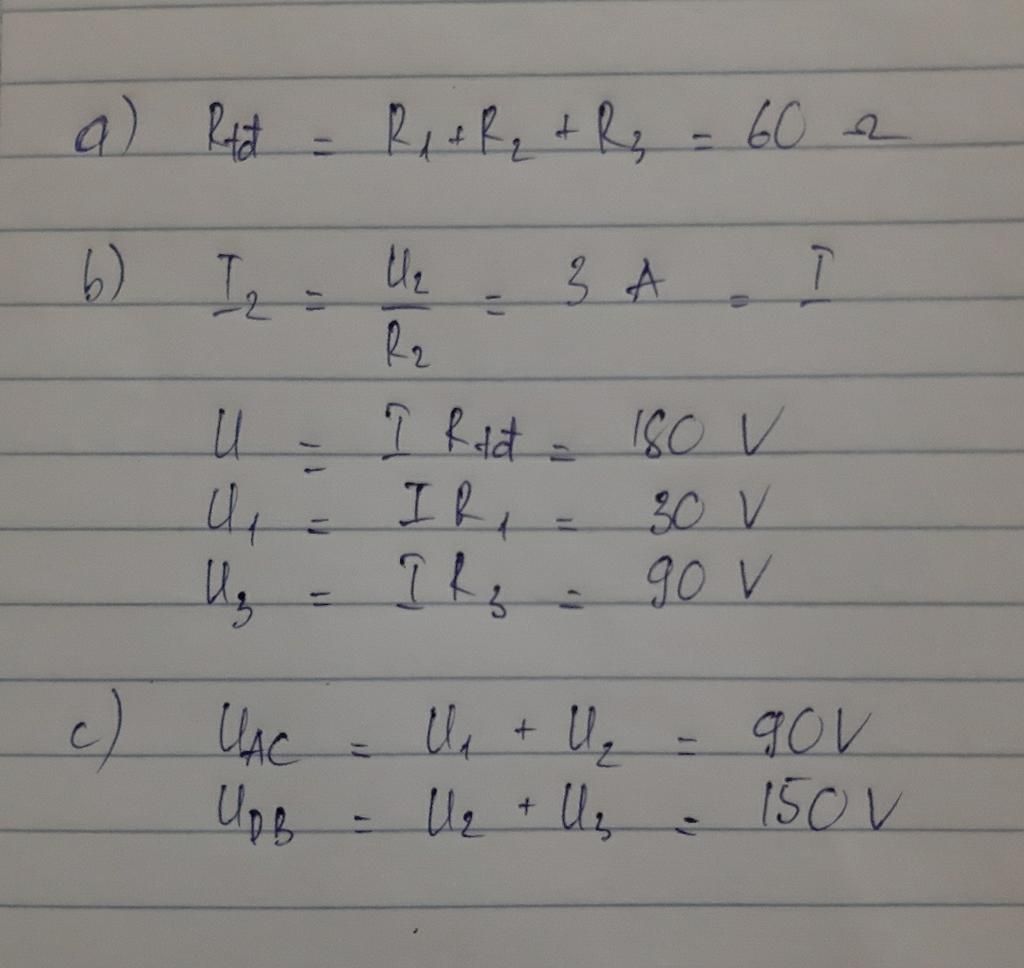 a) Rtđ = R₁ + R₂ + R₃ = 60 Ω
b) I₂ = U₂/R₂ = 3 A = I
U = I Rtđ = 180 V
U₁ = I R₁ = 30 V
U₃ = I R₃ = 90 V
c) U_AC = U₁ + U₂ = 90V
U_DB = U₂ + U₃ = 150V